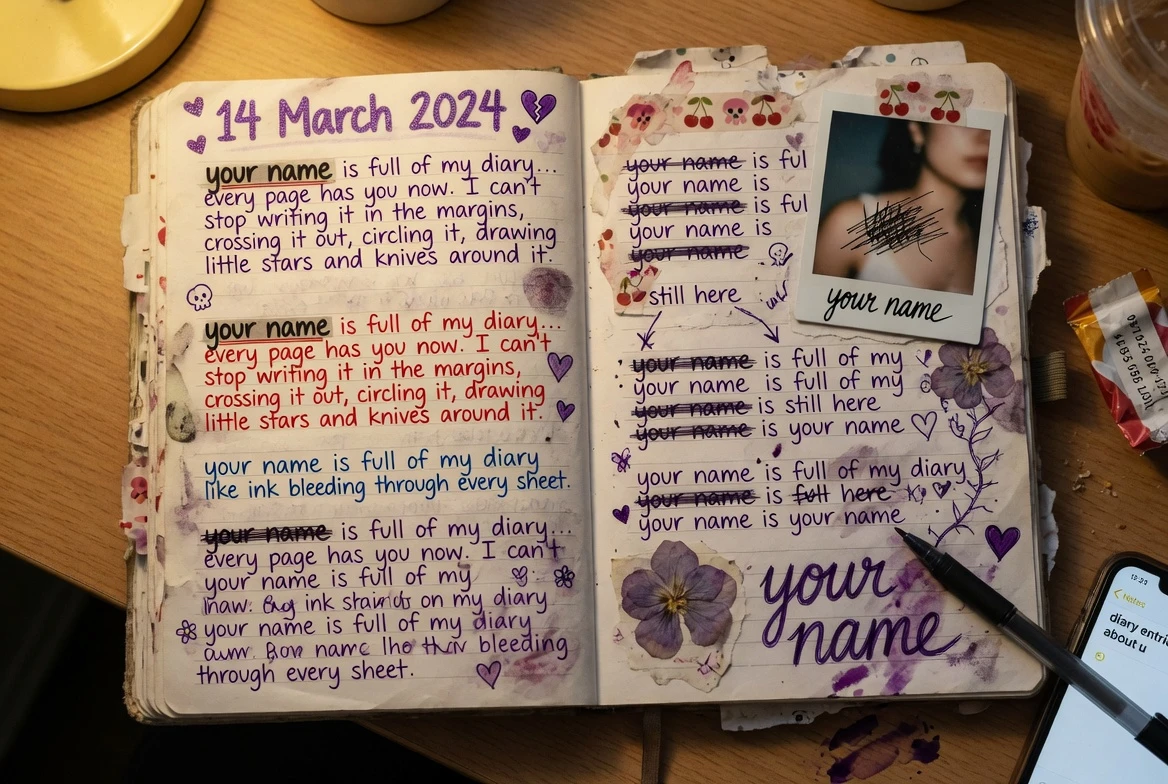 14 March 2024
your name is full of my diary...
every page has you now. I can't
stop writing it in the margins,
crossing it out, circling it, drawing
little stars and knives around it.
your name is full of my diary...
every page has you now. I can't
stop writing it in the margins,
crossing it out, circling it, drawing
little stars and knives around it.
your name is full of my diary
like ink bleeding through every sheet.
your name is full of my diary...
every page has you now. I can't
your name is full of my
ink on my diary
your name is full of my diary
name bleeding
through every sheet.
your name is ful
your name is
your name is ful
your name is
your name
still here
your name
your name is full of my
your name is full of my
your name is still here
your name is your name
your name is full of my diary
your name is full here
your name is your name
your
name
Notes
diary entrie
about u